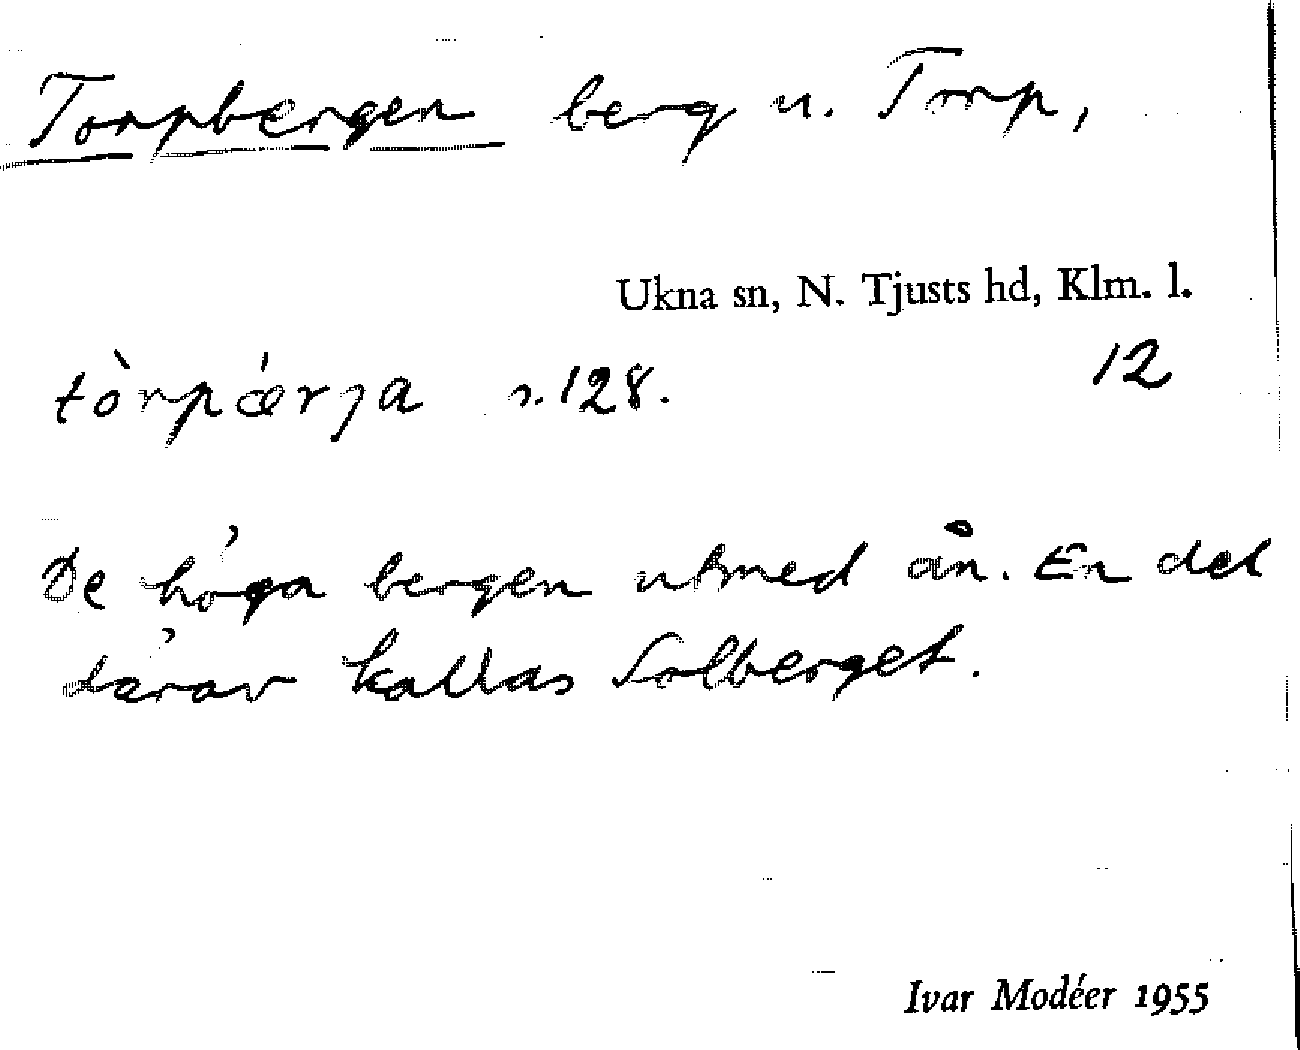 Torpbergen berg u. Torp,
Ukna sn, N. Tjusts hd, Klm. l.
tòrpǽrja s. 128. 12
De höga bergen utmed ån. En del
därav kallas Solberget.
Ivar Modéer 1955